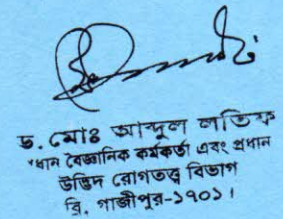 ড. মোঃ আব্দুল লতিফ
প্রধান বৈজ্ঞানিক কর্মকর্তা এবং প্রধান
উদ্ভিদ রোগতত্ত্ব বিভাগ
ব্রি, গাজীপুর-১৭০১।